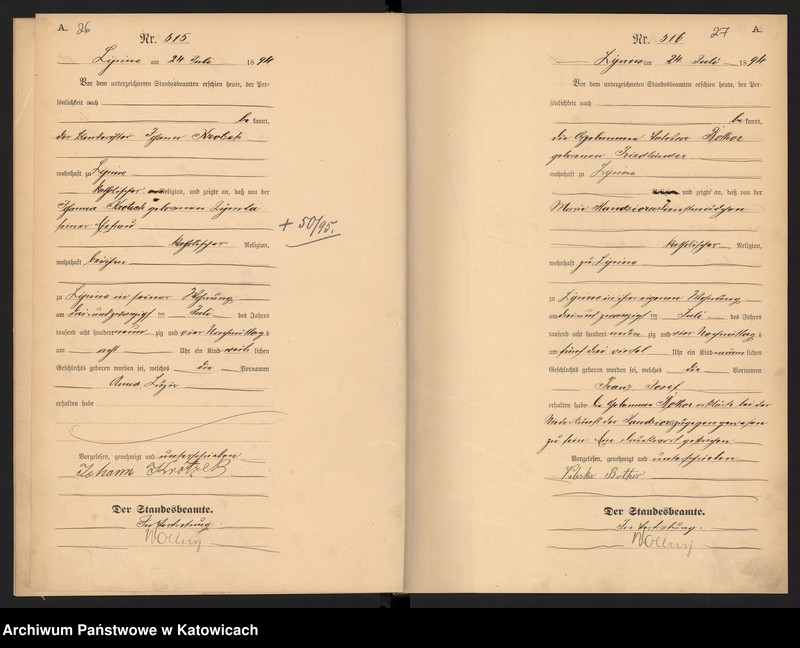 A. 26
Nr. 515
Lipine am 24 Juli 1894
Vor dem unterzeichneten Standesbeamten erschien heute, der Per-
sönlichkeit nach
be kannt,
der Johann Krotzek
wohnhaft zu Lipine
katholischer Religion, und zeigte an, daß von der
Johanna Krotzek geborenen
seiner Ehefrau
+ 50/95.
katholischer Religion,
wohnhaft bei ihm
zu Lipine in seiner Wohnung
am drei und zwanzigsten Juli des Jahres
tausend acht hundert neun zig und vier Nachmittags
um acht Uhr ein Kind weib lichen
Geschlechts geboren worden sei, welches die Vornamen
Anna
erhalten habe
Vorgelesen, genehmigt und unterschrieben
Johann Krotzek
Der Standesbeamte.
In Vertretung
Wollny
27 A.
Nr. 516
Lipine am 24 Juli 1894
Vor dem unterzeichneten Standesbeamten erschien heute, der Per-
sönlichkeit nach
be kannt,
die Hebamme Bothor
geborenen Friedländer
wohnhaft zu Lipine
und zeigte an, daß von der
Marie Dienstmädchen
katholischer Religion,
wohnhaft zu Lipine
zu Lipine in ihrer eigenen Wohnung
am drei und zwanzigsten Juli des Jahres
tausend acht hundert neun zig und vier Nachmittag s
um fünf drei viertel Uhr ein Kind männ lichen
Geschlechts geboren worden sei, welches die Vornamen
Franz Josef
erhalten habe. Die Hebamme Bothor erklärte bei der
Niederkunft der zugegen gewesen
zu sein. Ein Druckwort gestrichen
Vorgelesen, genehmigt und unterschrieben
Bothor
Der Standesbeamte.
In Vertretung.
Wollny
Archiwum Państwowe w Katowicach